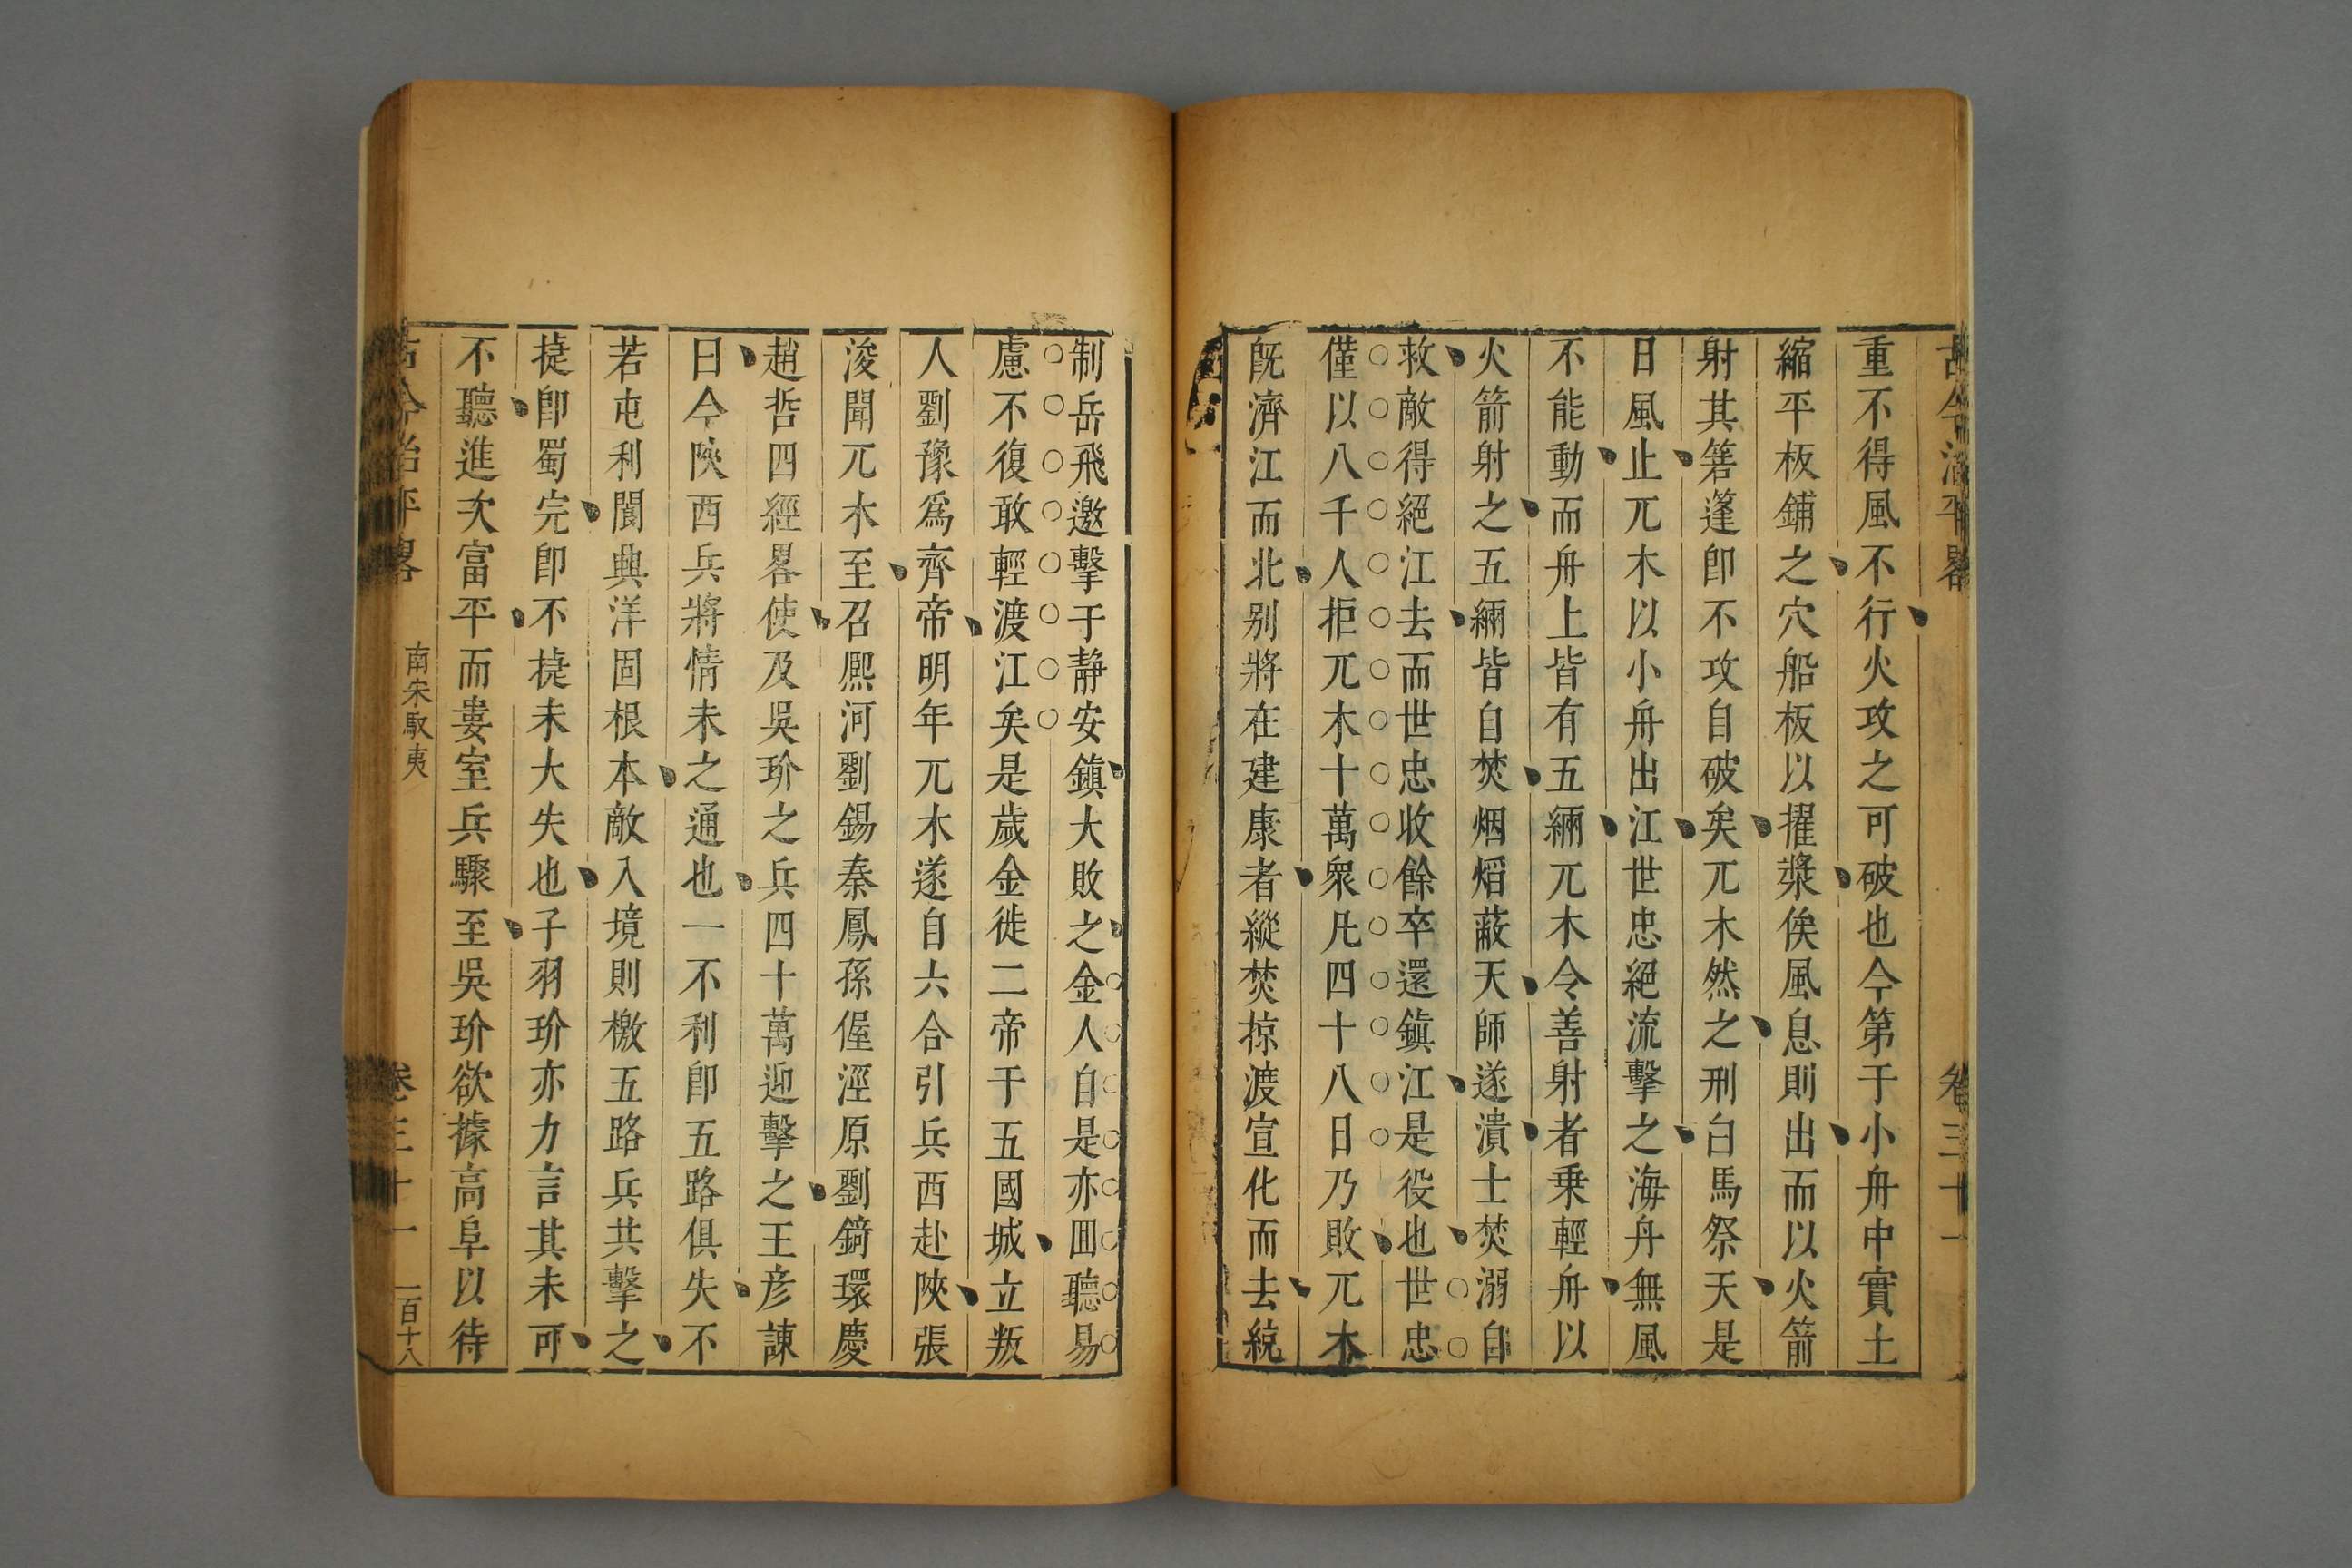 古今治平畧 卷三十一
重不得風不行火攻之可破也今第于小舟中實土
縮平板鋪之穴船板以擢槳俟風息則出而以火箭
射其箬蓬卽不攻自破矣兀木然之刑白馬祭天是
日風止兀木以小舟出江世忠絕流擊之海舟無風
不能動而舟上皆有五緉兀木令善射者乗輕舟以
火箭射之五緉皆自焚烟熖蔽天師遂潰士焚溺自
救敵得絕江去而世忠收餘卒還鎭江是役也世忠
僅以八千人拒兀木十萬衆凡四十八日乃敗兀木
旣濟江而北别將在建康者縱焚掠渡宣化而去統
制岳飛邀擊于静安鎭大敗之金人自是亦囬聽易
慮不復敢輕渡江矣是歲金徙二帝于五國城立叛
人劉豫爲齊帝明年兀木遂自六合引兵西赴陜張
浚聞兀木至召熈河劉錫秦鳳孫偓涇原劉錡環慶
趙哲四經畧使及吳玠之兵四十萬迎擊之王彦諌
日今陜西兵將情未之通也一不利卽五路俱失不
若屯利閬興洋固根本敵入境則檄五路兵共擊之
㨗卽蜀完卽不㨗未大失也子羽玠亦力言其未可
不聽進次富平而婁室兵驟至吳玠欲據高阜以待
古今治平畧 南宋馭夷 卷三十一 一百十八